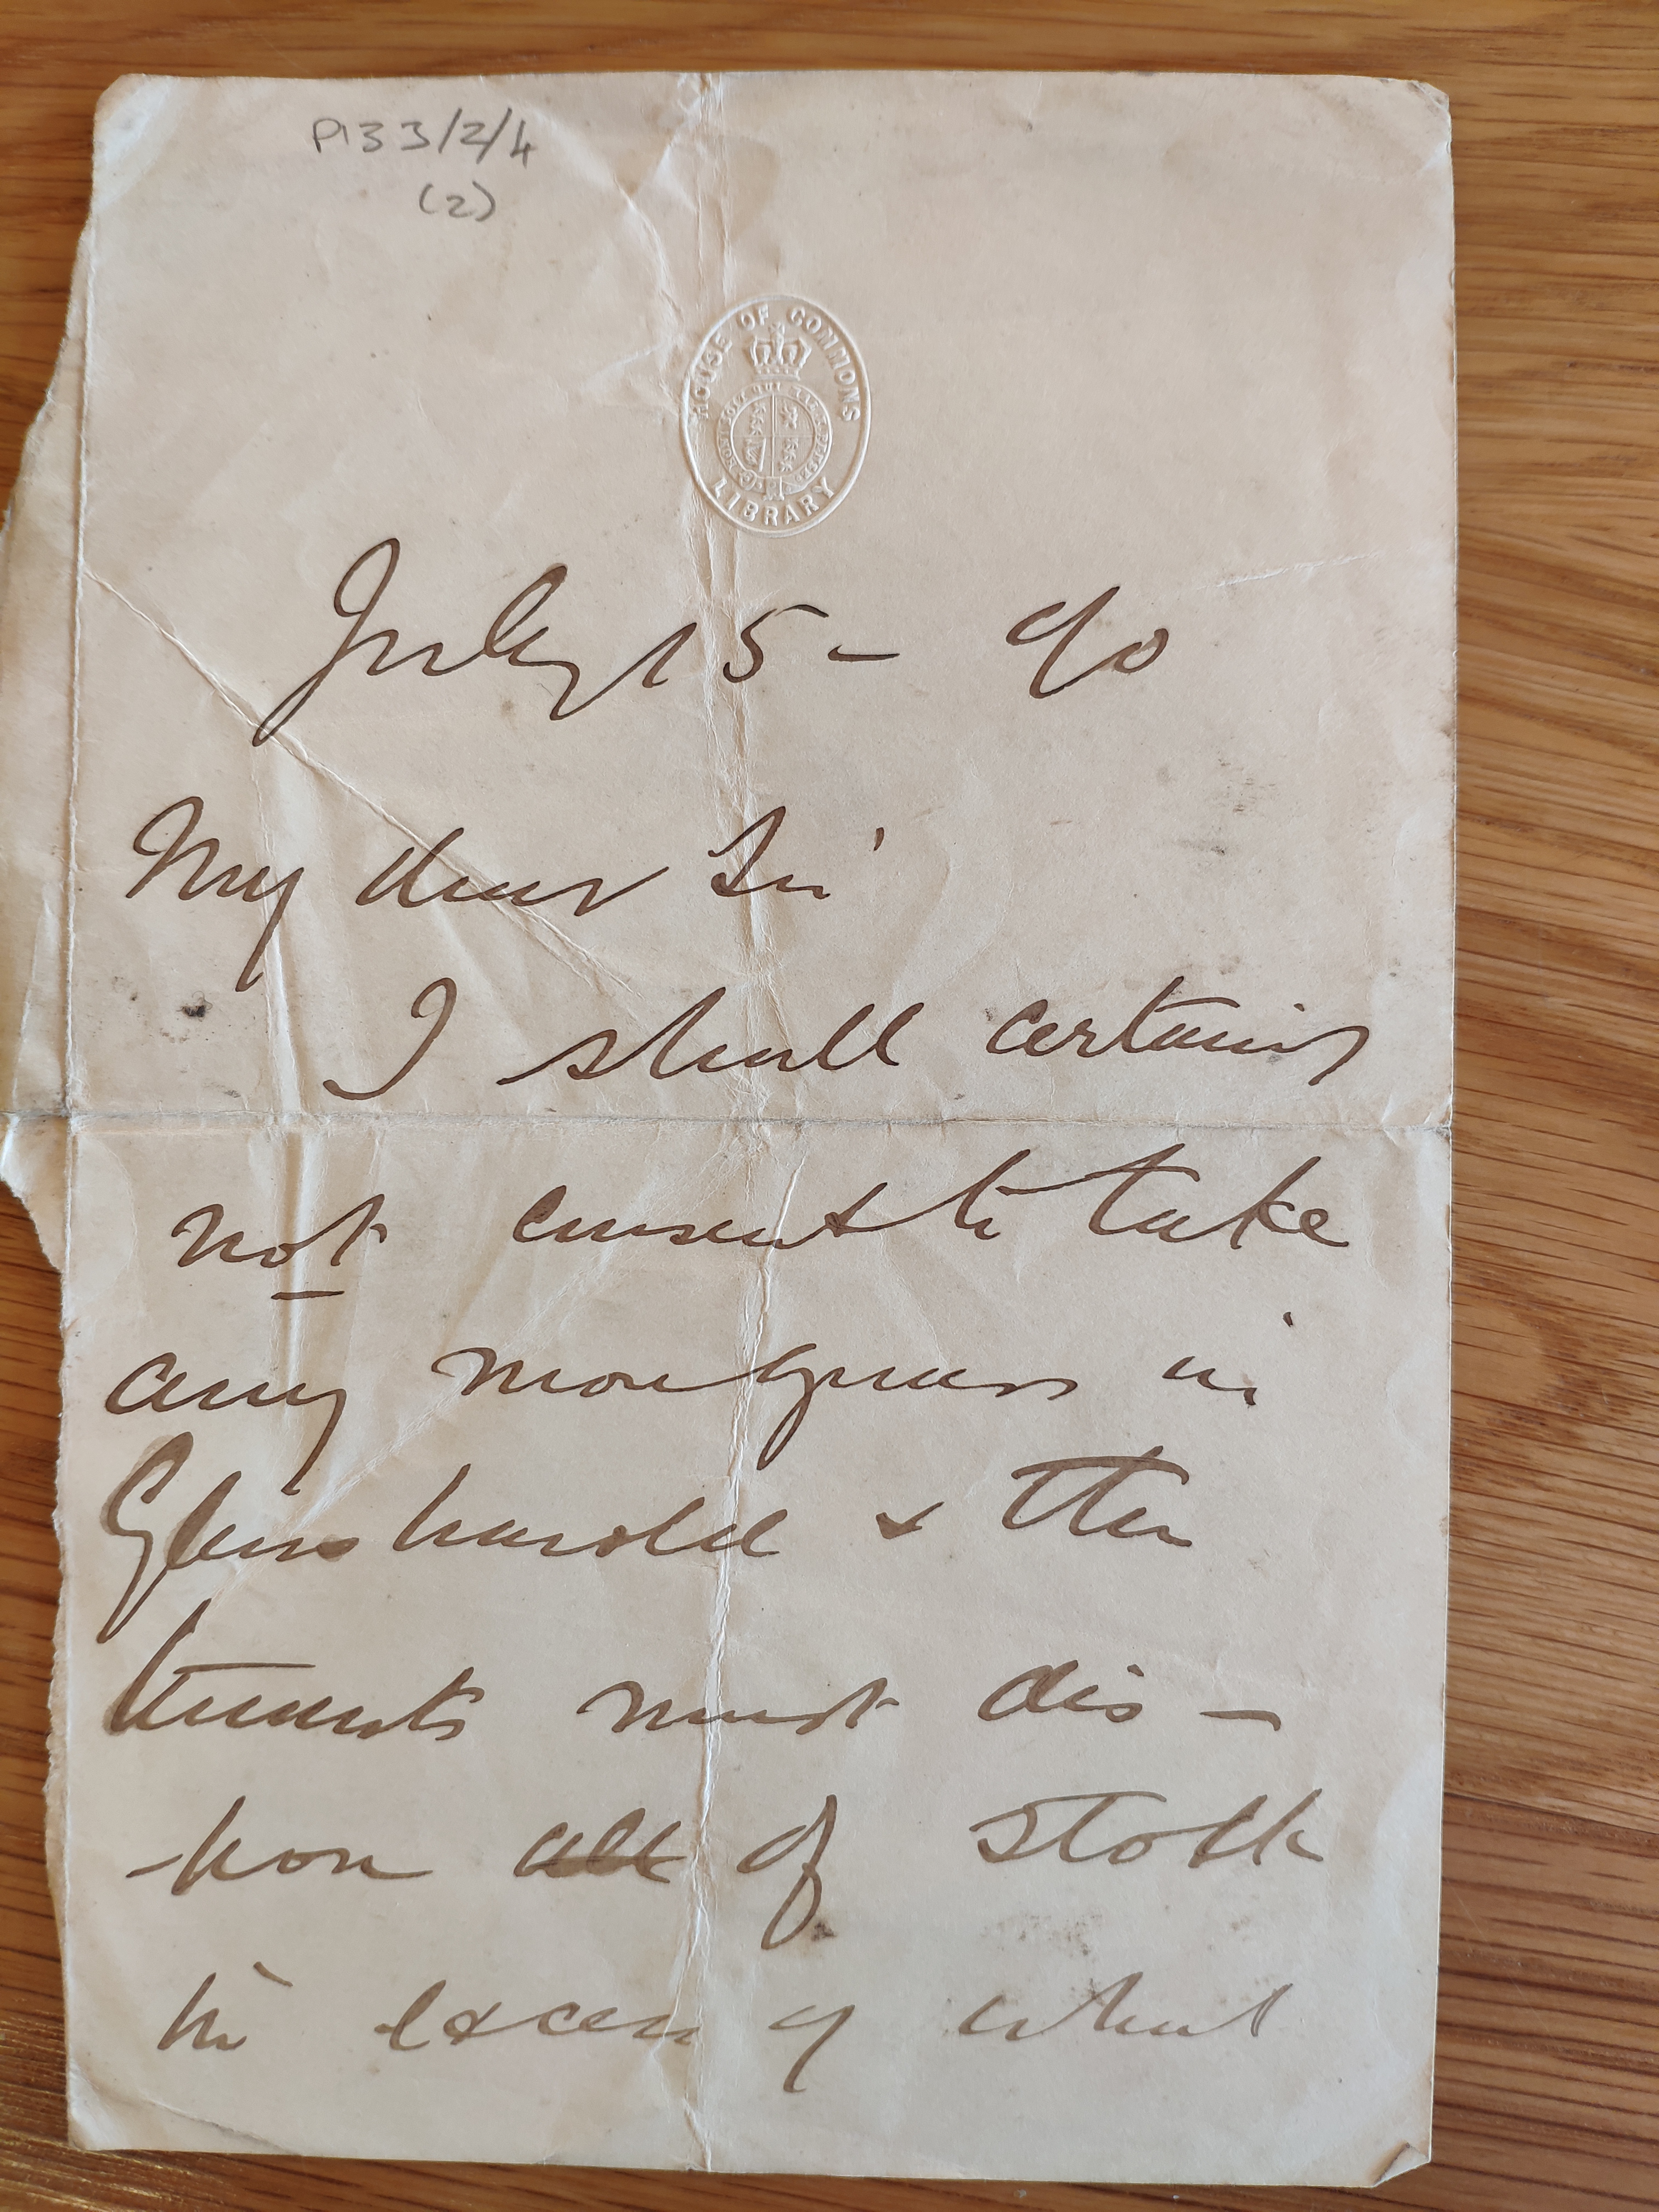 P133/2/4
(2)
HOUSE OF COMMONS
LIBRARY
July 15 - 90
My dear Sir
I shall certainly
not consent to take
any more in
& the
tenants must dis -
of stock
in excess of what